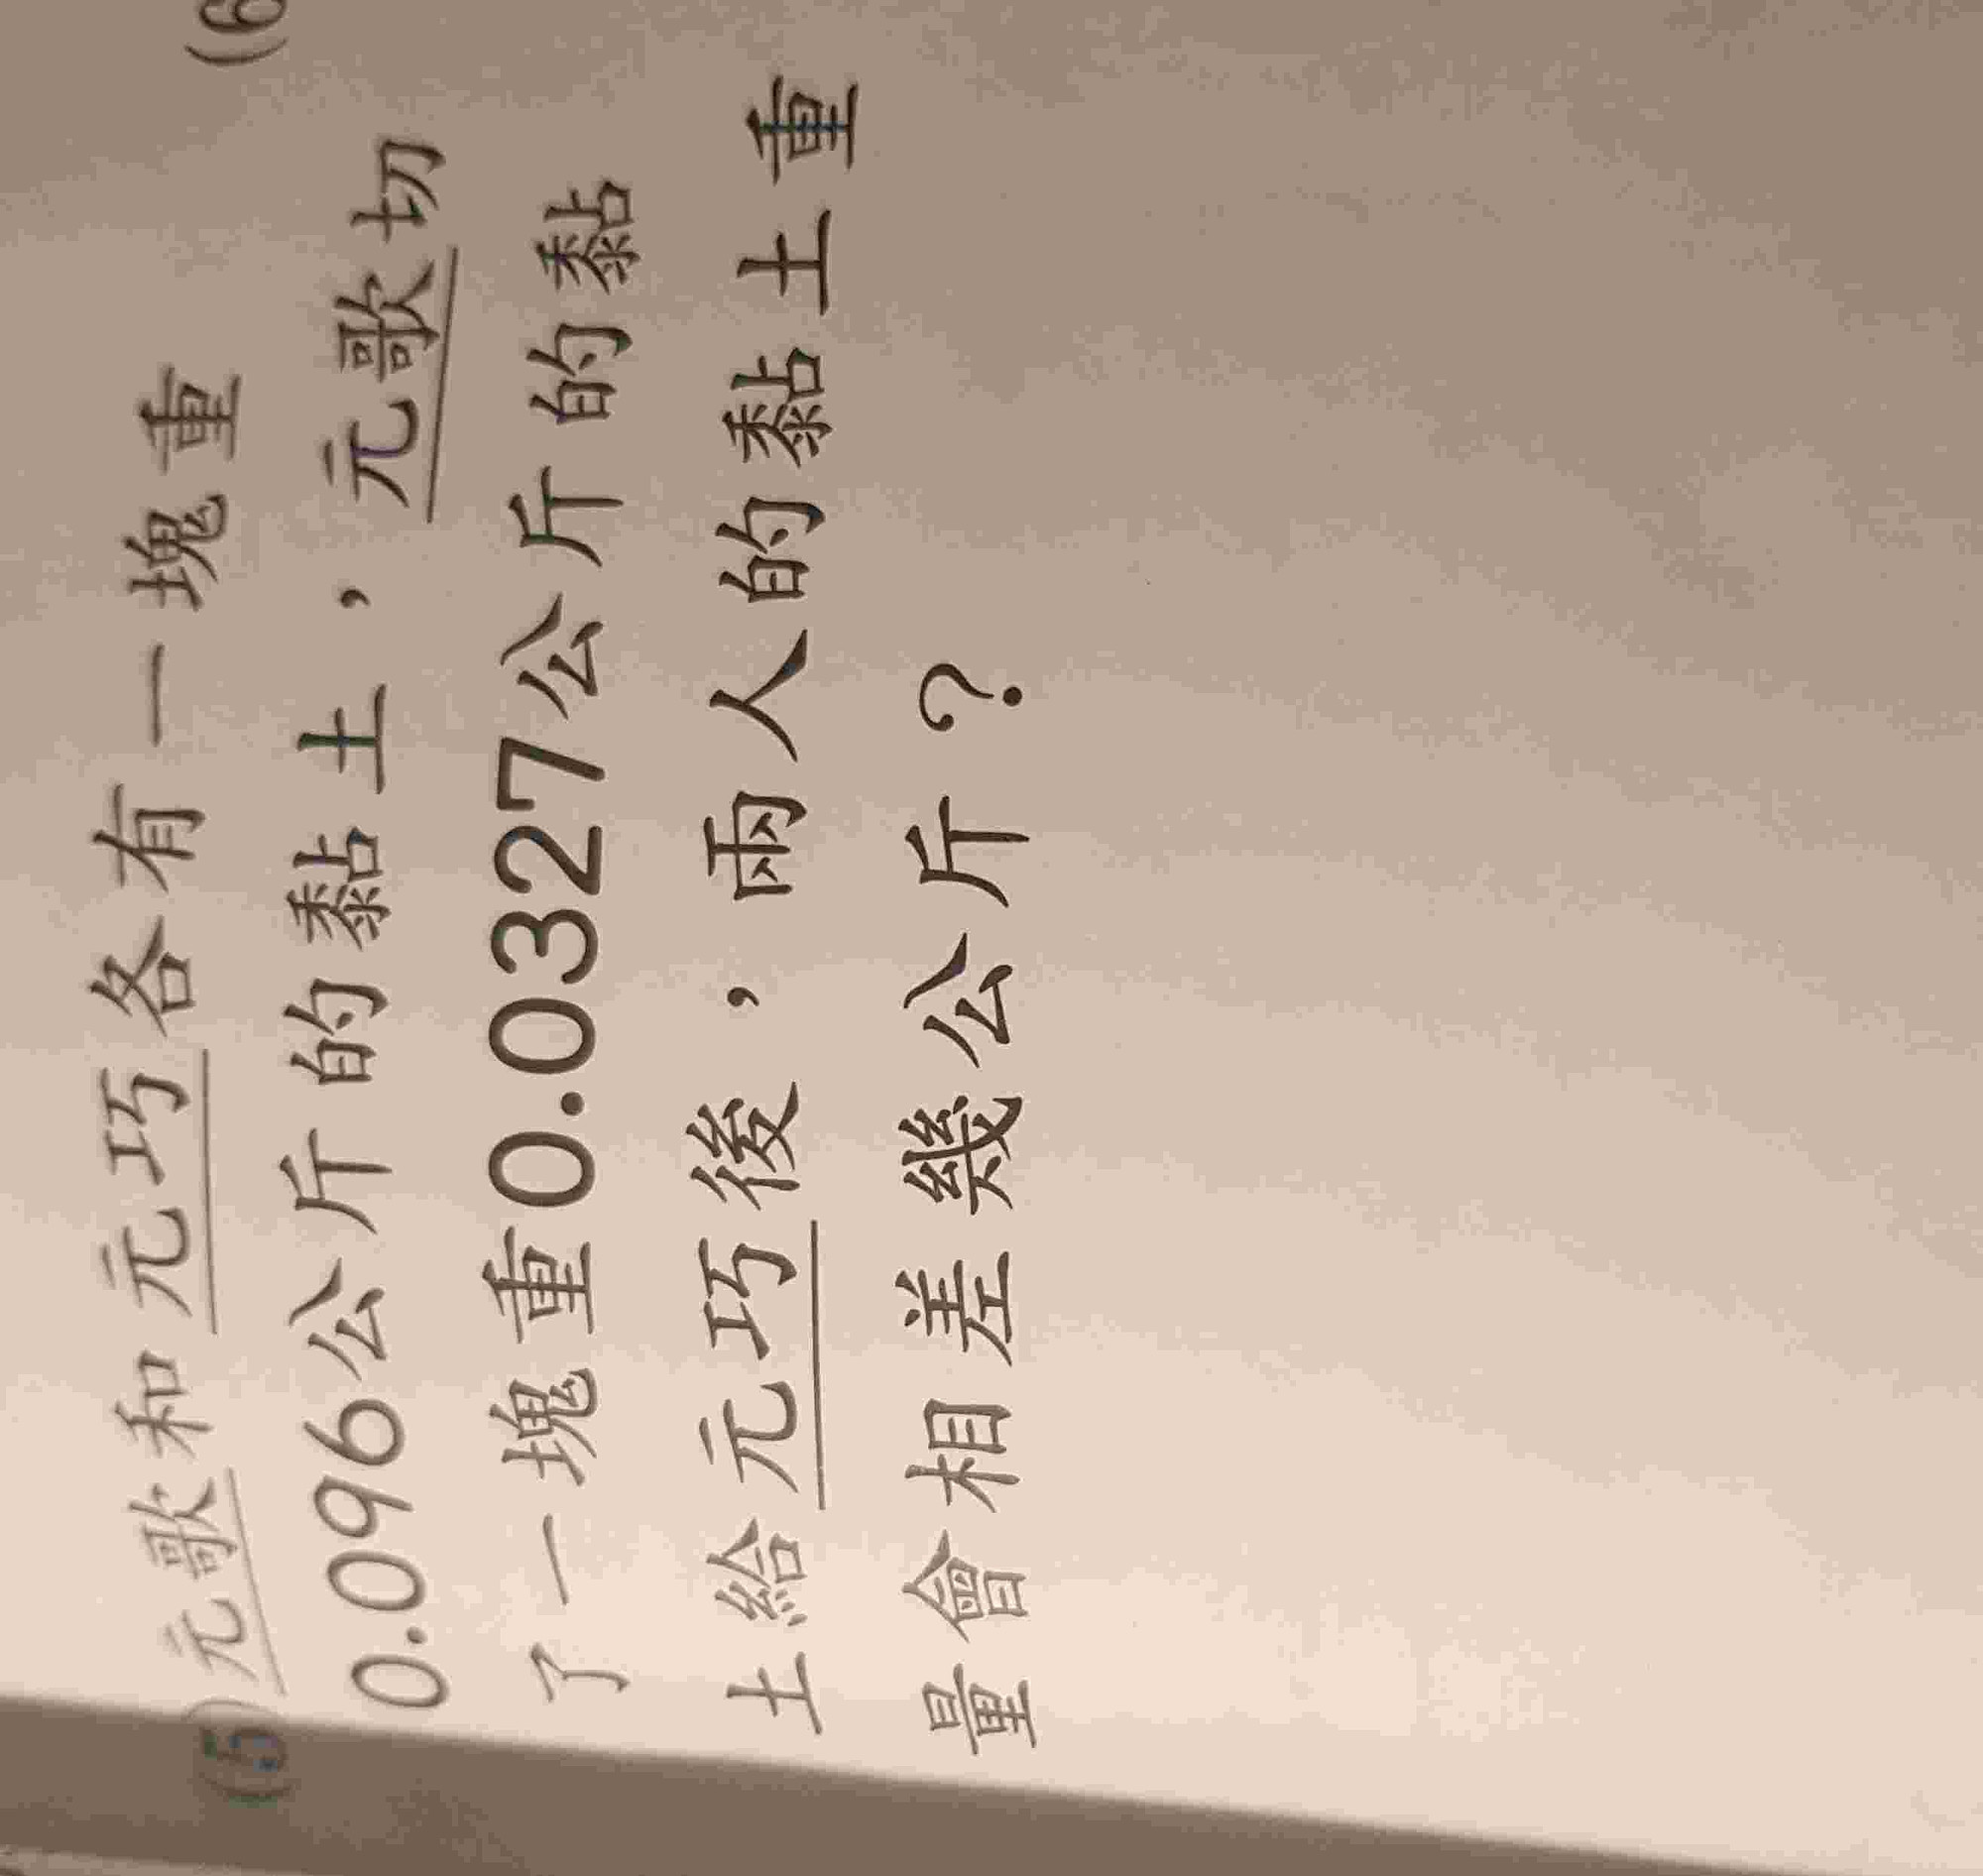 (5)元歌和元巧各有一塊重
0.096公斤的黏土，元歌切
了一塊重0.0327公斤的黏
土給元巧後，兩人的黏土重
量會相差幾公斤？
(6